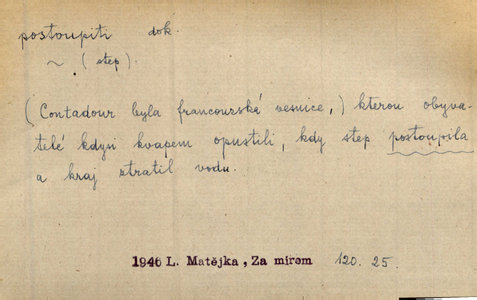 postoupiti dok.
~ (step).
(Contadour byla francourské vesnice,) kterou obyva-
telé kdysi kvapem opustili, kdy step postoupila
a kraj ztratil vodu.
1946 L. Matějka, Za mírem 120. 25.